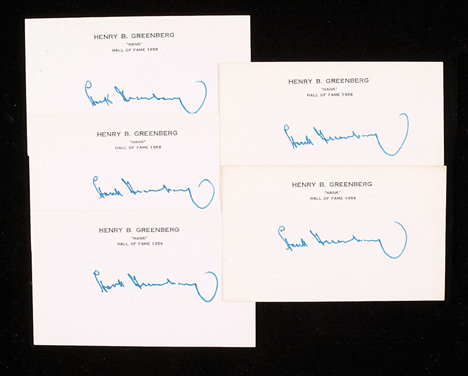 HENRY B. GREENBERG
"HANK"
HALL OF FAME 1956
Hank Greenberg
HENRY B. GREENBERG
"HANK"
HALL OF FAME 1956
Hank Greenberg
HENRY B. GREENBERG
"HANK"
HALL OF FAME 1956
Hank Greenberg
HENRY B. GREENBERG
"HANK"
HALL OF FAME 1956
Hank Greenberg
HENRY B. GREENBERG
"HANK"
HALL OF FAME 1956
Hank Greenberg